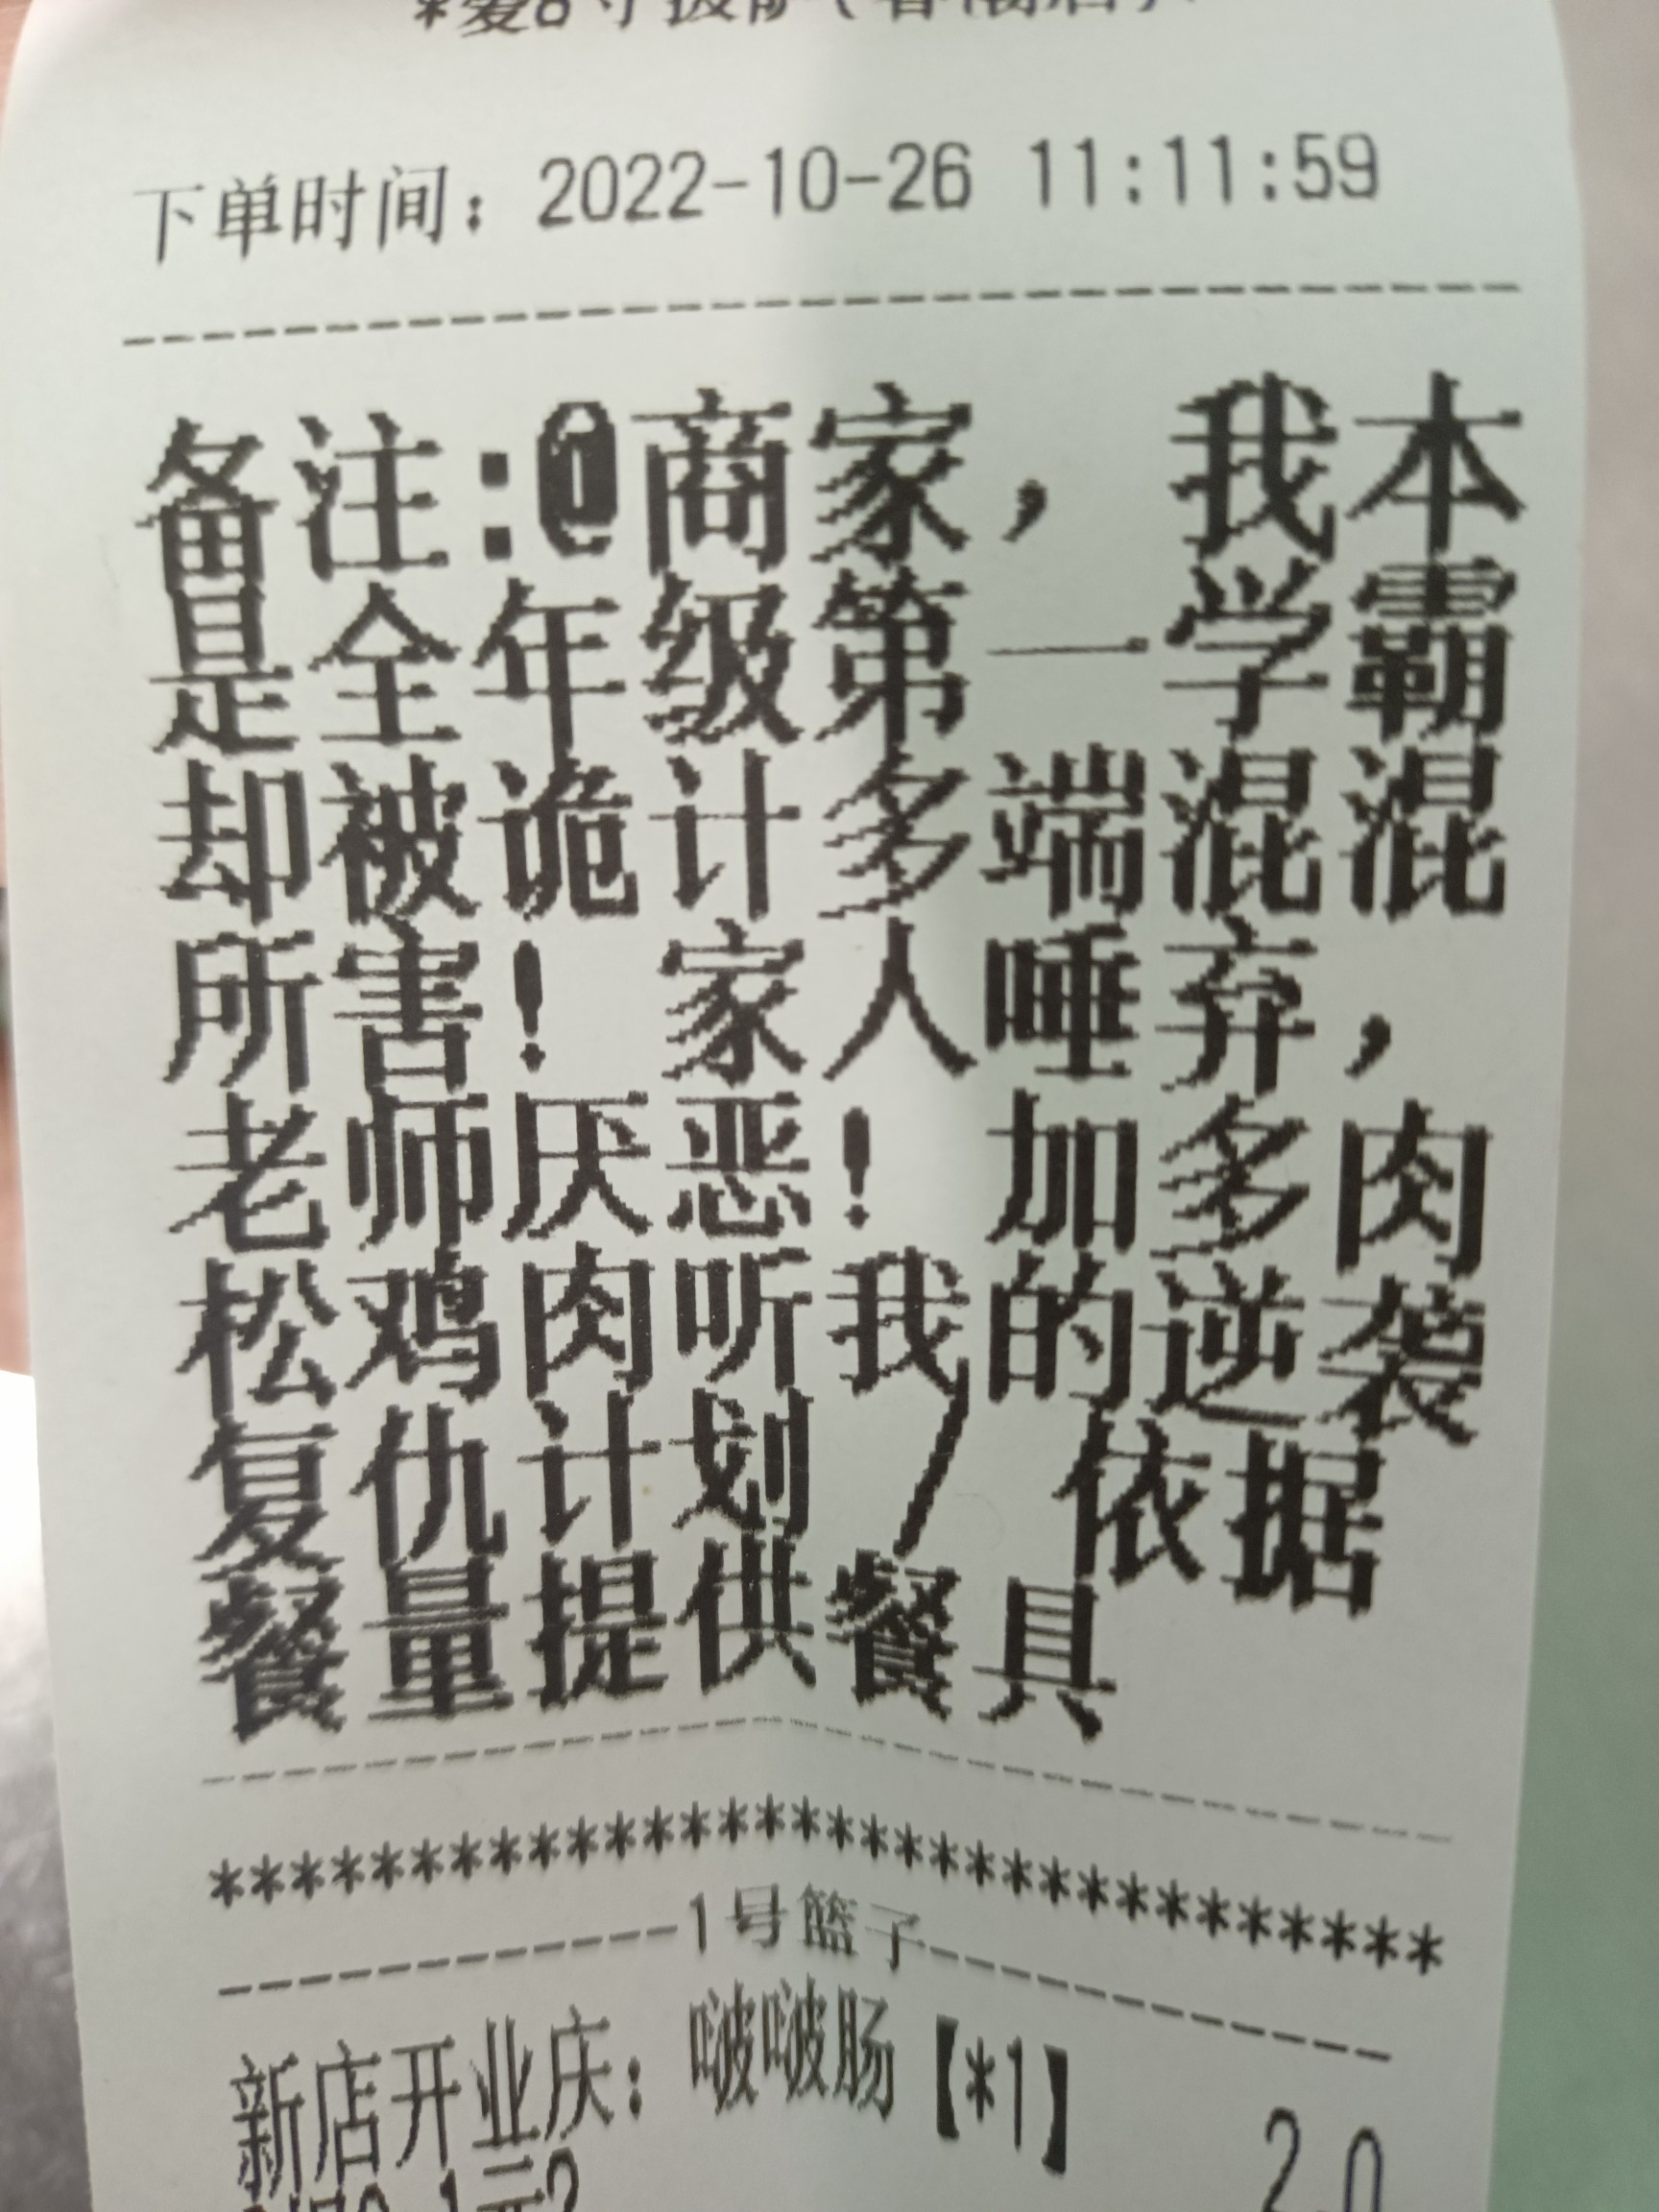 下单时间：2022-10-26 11:11:59
备注:@商家，我本
是全年级第一学霸
却被诡计多端混混
所害！家人唾弃，
老师厌恶！加多肉
松鸡肉听我的逆袭
复仇计划） 依据
餐量提供餐具
******************************
1号篮子
新店开业庆：啵啵肠【*1】
2.0